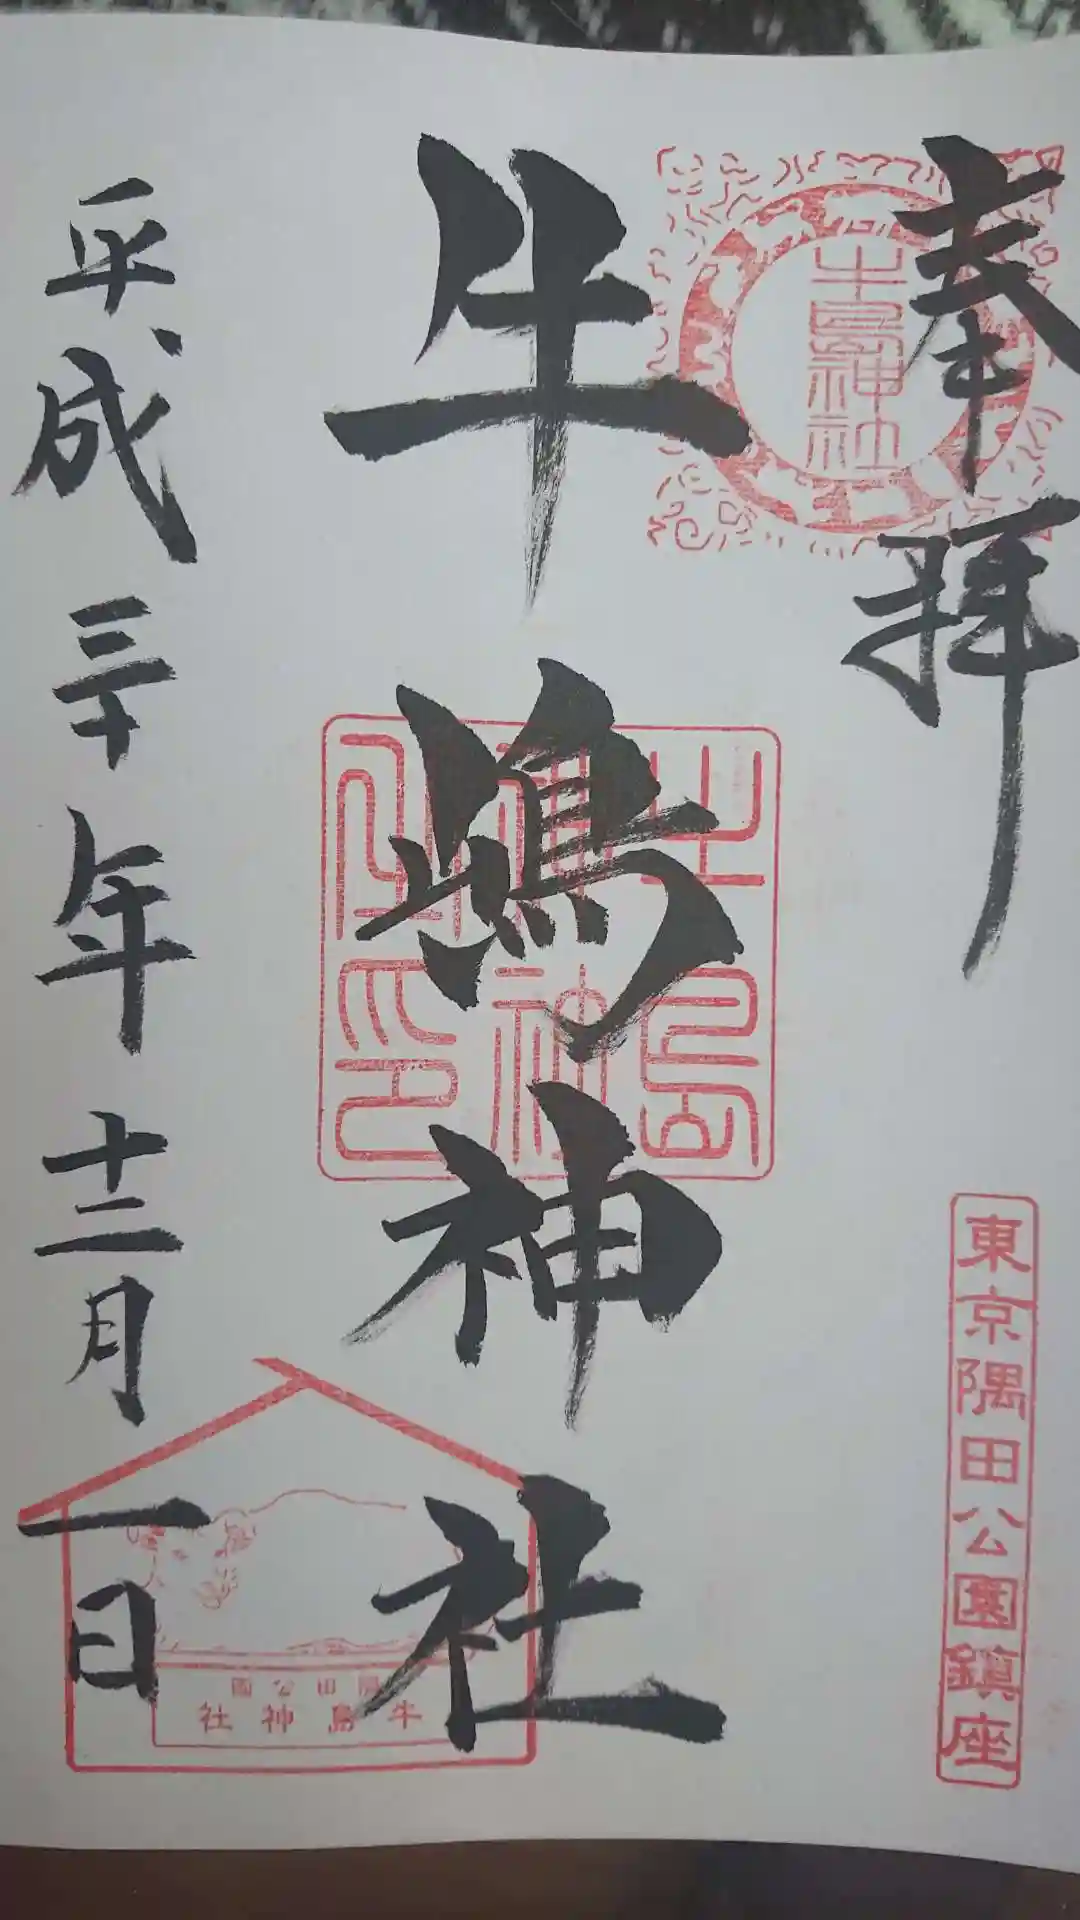 奉拝
牛島神社
東京隅田公園鎮座
牛嶋神社
牛島神社之印
平成三十年十二月一日
隅田公園
牛島神社